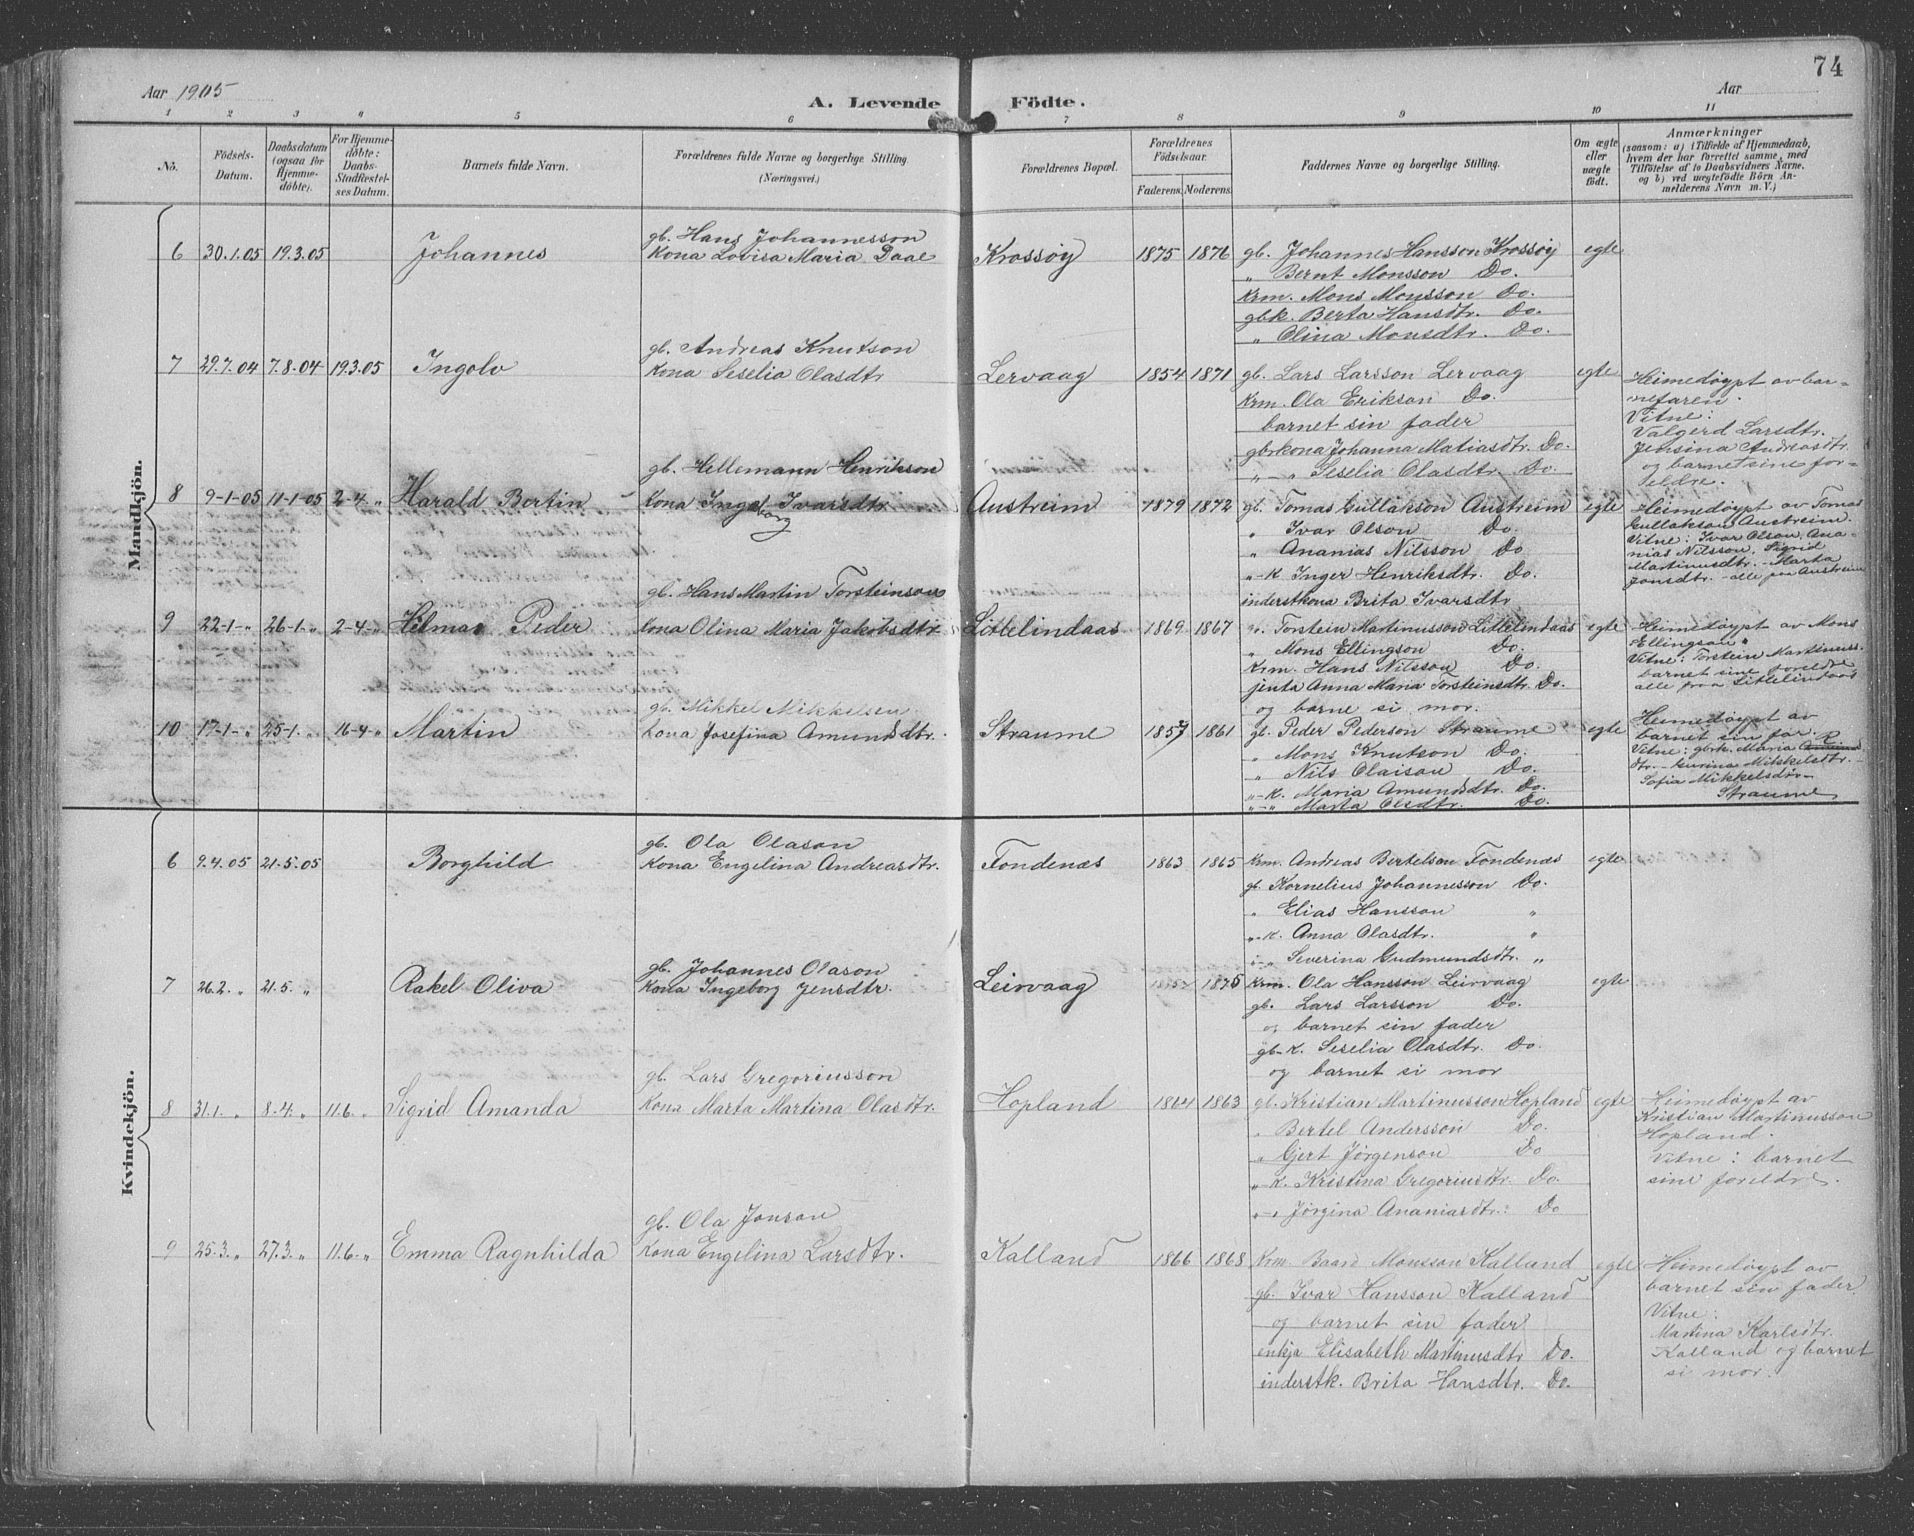 74
Aar 1905
A. Levende Födte.
Aar
1 2 3 4 5 6 7 8 9 10 11
No.
Födsels-Datum.
Daabsdatum (ogsaa for Hjemmedöbte).
For Hjemmedöbte: Daabs-Stadfæstelses Datum.
Barnets fulde Navn.
Forældrenes fulde Navne og borgerlige Stilling. (Næringsvei.)
Forældrenes Bopæl.
Forældrenes Födselsaar.
Faderens. Moderens.
Faddernes Navne og borgerlige Stilling.
Om ægte eller uægte födt.
Anmærkninger
(saasom: a) i Tilfælde af Hjemmedaab, hvem der har forrettet samme, med Tilföielse af to Daabsvidners Navne. og b) ved uægtefödte Börn Anmelderens Navn m. V.)
Mandkjön.
6 30.1.05 19.3.05 Johannes
gb. Hans Johannesson
Kona Lovisa Maria Daae
Krossøy 1875 1876
gb. Johannes Hansson Krossøy
" Bernt Monsson Do.
Krm. Mons Monsson Do.
gbk. Berta Hansdtr. Do.
" Olina Monsdtr. Do.
egte
7 29.7.04 7.8.04 19.3.05 Ingolv
gb. Andreas Knutson
Kona Seselia Olasdtr
Lervaag 1854 1871
gb. Lars Larsson Lervaag
Krm. Ola Erikson Do.
barnet sin fader
gbrkona Johanna Matiasdtr. Do.
"-" Seselia Olasdtr. Do.
egte
Heimedøypt av bar-
nefaren.
Vitne:
Valgerd Larsdtr.
Jensina Andreasdtr.
og barnet sine for-
eldre.
8 9-1-05 11-1-05 2-4-" Harald Bertin
gb. Hellemann Henrikson
Kona Ingeborg Ivarsdtr
Austreim 1879 1872
gb. Tomas Gullakson Austreim
" Ivar Olson Do.
" Ananias Nilsson Do
"-k Inger Henriksdtr. Do.
inderstkona Brita Ivarsdtr
egte
Heimedøypt av Tomas
Gullakson Austreim.
Vitne: Ivar Olson, Ana-
nias Nilsson, Sigrid
Martinusdtr. - Marta
Jonsdtr. - alle fraa Austreim
9 22-1-" 26-1-" 2-4-" Hilmar Peder
gb. Hans Martin Torsteinson
Kona Olina Maria Jakobsdtr
Litlelindaas 1869 1867
gb. Torstein Martinusson Litlelindaas
" Mons Ellingson Do.
Krm. Hans Nilsson Do.
jenta Anna Maria Torsteinsdtr. Do.
og barne si mor.
egte
Heimedøypt av Mons
Ellingson "
Vitne: Torstein Martinuss.
barnet sine foreldre
alle fraa Litlelindaas
10 17-1-" 25-1-" 16-4-" Martin
gb. Mikkel Mikkelsen
Kona Josefina Amundsdtr.
Straume 1857 1861
gb. Peder Pederson Straume
" Mons Knutson Do.
" Nils Olaison Do.
"-k. Maria Amundsdtr. Do.
"-" Marta Olsdtr. Do.
egte
Heimedøypt av
barnet sin far.
Vitne: gbrk. Maria
dtr. - Gurina Mikkelsdtr. -
Sofia Mikkelsdtr -
Straume
Kvindekjön.
6 9.4.05 21.5.05 Borghild
gb. Ola Olason
Kona Engelina Andreasdtr.
Fondenæs 1863 1865
Krm. Andreas Bertelson Fondenæs
gb. Kornelius Johannesson Do.
" Elias Hansson "
"-k. Anna Olasdtr. "
"-" Severina Gudmundsdtr. "
egte
7 26.2. " 21.5. " Rakel Oliva
gb. Johannes Olason
Kona Ingeborg Jensdtr.
Leirvaag 1875
Krm. Ola Hansson Leirvaag
gb. Lars Larsson Do.
og barnet sin fader
gb-k. Seselia Olasdtr. Do.
og barnet si mor
egte
8 31.1. " 8.4. " 11.6. " Sigrid Amanda
gb. Lars Gregoriusson
Kona Marta Martina Olasdtr.
Hopland 1864 1863
gb. Kristian Martinusson Hopland
" Bertel Andersson Do.
" Gjert Jørgenson Do
"-k. Kristina Gregoriusdtr. Do.
"-" Jørgina Ananiasdtr. Do
egte
Heimedøypt av
Kristian Martinusson
Hopland.
Vitne: barnet
sine foreldre.
9 25.3. " 27.3. " 11.6. " Emma Ragnhilda
gb. Ola Jonson
Kona Engelina Larsdtr.
Kalland 1866 1868
Krm. Baard Monsson Kalland
gb. Ivar Hansson Kalland
og barnet sin fader
enkja Elisabeth Martinusdtr Do.
inderstk. Brita Hansdtr. Do.
egte
Heimedøypt av
barnet sin fader
Vitne:
Martina Karlsdtr.
Kalland og barnet
si mor.